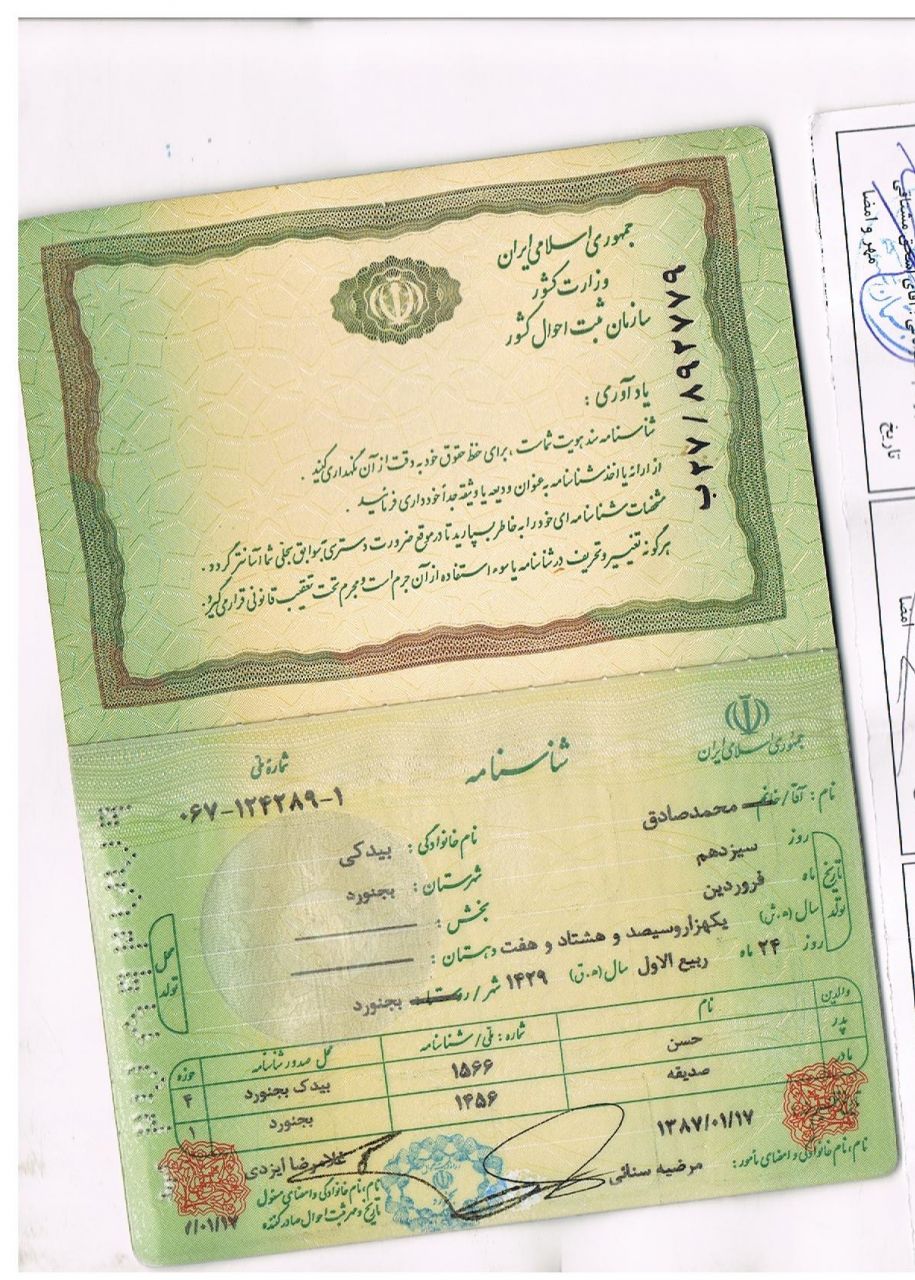 جمهوری اسلامی ایران
وزارت کشور
سازمان ثبت احوال کشور
ب ۲۷/۸۹۲۷۷۹
یادآوری :
شناسنامه سند هویت شماست ، برای حفظ حقوق خود به دقت از آن نگهداری کنید .
از ارائه یا اخذ شناسنامه به عنوان ودیعه یا وثیقه جداً خودداری فرمائید .
مشخصات شناسنامه ای خود را به خاطر بسپارید تا در موقع ضرورت دسترسی به سوابق سجلی شما آسانتر گردد .
هرگونه تغییر و تحریف در شناسنامه یا سوء استفاده از آن جرم است و مجرم تحت تعقیب قانونی قرار می گیرد.
جمهوری اسلامی ایران
شناسنامه
شماره ملی
۰۶۷-۱۲۴۲۸۹-۱
نام : آقا / خانم محمدصادق
نام خانوادگی : بیدکی
تاریخ تولد
روز سیزدهم
ماه فروردین
سال (ه.ش) یکهزاروسیصد و هشتاد و هفت
روز ۲۴ ماه ربیع الاول سال (ه.ق) ۱۴۲۹
محل تولد
شهرستان : بجنورد
بخش :
دهستان :
شهر / روستا : بجنورد
والدین نام شماره : ملی / شناسنامه محل صدور شناسنامه حوزه
پدر حسن ۱۵۶۶ بیدک بجنورد ۴
مادر صدیقه ۱۴۵۶ بجنورد ۱
۱۳۸۷/۰۱/۱۷
نام ، نام خانوادگی و امضای مأمور : مرضیه سنائی
غلامرضا ایزدی
نام ، نام خانوادگی و امضای مسئول
تاریخ و مهر ثبت احوال صادر کننده
/۰۱/۱۷
مهر و امضا
تاریخ
امضا